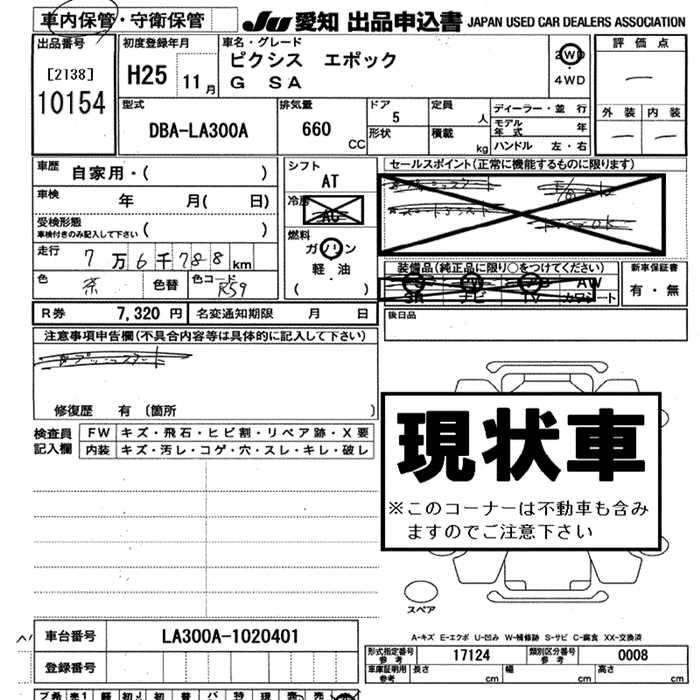 車内保管・守衛保管
JU 愛知 出品申込書 JAPAN USED CAR DEALERS ASSOCIATION
出品番号
[2138]
10154
初度登録年月
H25 11 月
車名・グレード
ピクシス エポック
G SA
2WD
・
4WD
評価点
—
外装 内装
— —
型式
DBA-LA300A
排気量
660
CC
ドア
5
形状
定員
人
積載
kg
ディーラー・並行
モデル年式 年
ハンドル 左・右
車歴
自家用・( )
車検
年 月( 日)
受検形態
車検付きのみ記入して下さい ( )
走行
7万6千788km
色
茶
色替
色コード
R59
シフト
AT
冷房
AC
燃料
ガソリン
・
軽・油
( )
セールスポイント(正常に機能するものに限ります)
装備品(純正品に限り○をつけてください)
AW
SR ナビ TV カワシート
新車保証書
有・無
後日品
R券 7,320 円 名変通知期限 月 日
注意事項申告欄(不具合内容等は具体的に記入して下さい)
修復歴 有 (箇所 )
検査員
記入欄
FW キズ・飛石・ヒビ割・リペア跡・X要
内装 キズ・汚レ・コゲ・穴・スレ・キレ・破レ
現状車
※このコーナーは不動車も含み
ますのでご注意下さい
スペア
A-キズ E-エクボ U-凹み W-補修跡 S-サビ C-腐食 XX-交換済
車台番号 LA300A-1020401
登録番号
形式指定番号
参考
17124
類別区分番号
参考
0008
車庫証明用
参考
長さ cm 幅 cm 高さ cm